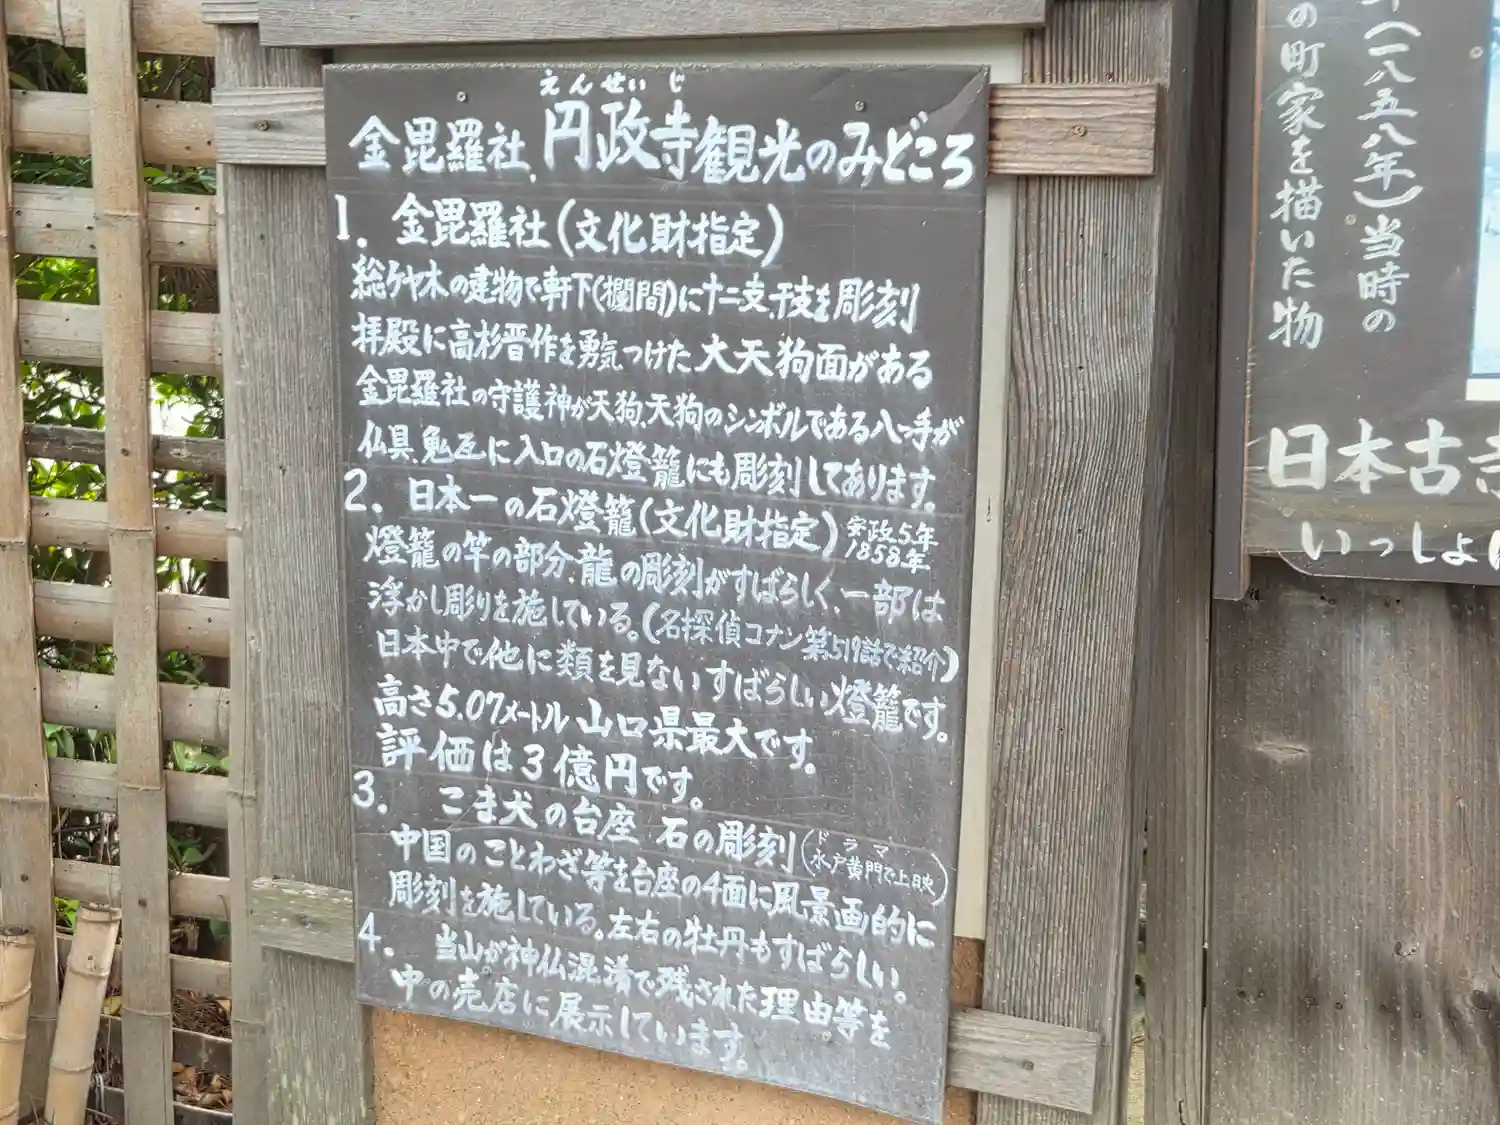 えんせいじ
金毘羅社、円政寺観光のみどころ
1. 金毘羅社(文化財指定)
総ケヤ木の建物で軒下(欄間)に十二支、干支を彫刻
拝殿に高杉晋作を勇気つけた大天狗面がある
金毘羅社の守護神が天狗、天狗のシンボルである八っ手が
仏具、鬼瓦に入口の石燈籠にも彫刻してあります。
2. 日本一の石燈籠(文化財指定)
政5年
1858年
燈籠の竿の部分、龍の彫刻がすばらしく、一部は
浮かし彫りを施している。(名探偵コナン第519話で紹介)
日本中で他に類を見ないすばらしい燈籠です。
高さ5.07メートル山口県最大です。
評価は3億円です。
3. こま犬の台座 石の彫刻(ドラマ
水戸黄門で上映)
中国のことわざ等を台座の4面に風景画的に
彫刻を施している。左右の牡丹もすばらしい。
4. 当山が神仏混淆で残された理由。等を
中の売店に展示しています。
(一八五八年)当時の
の町家を描いた物
日本古
いっしょ